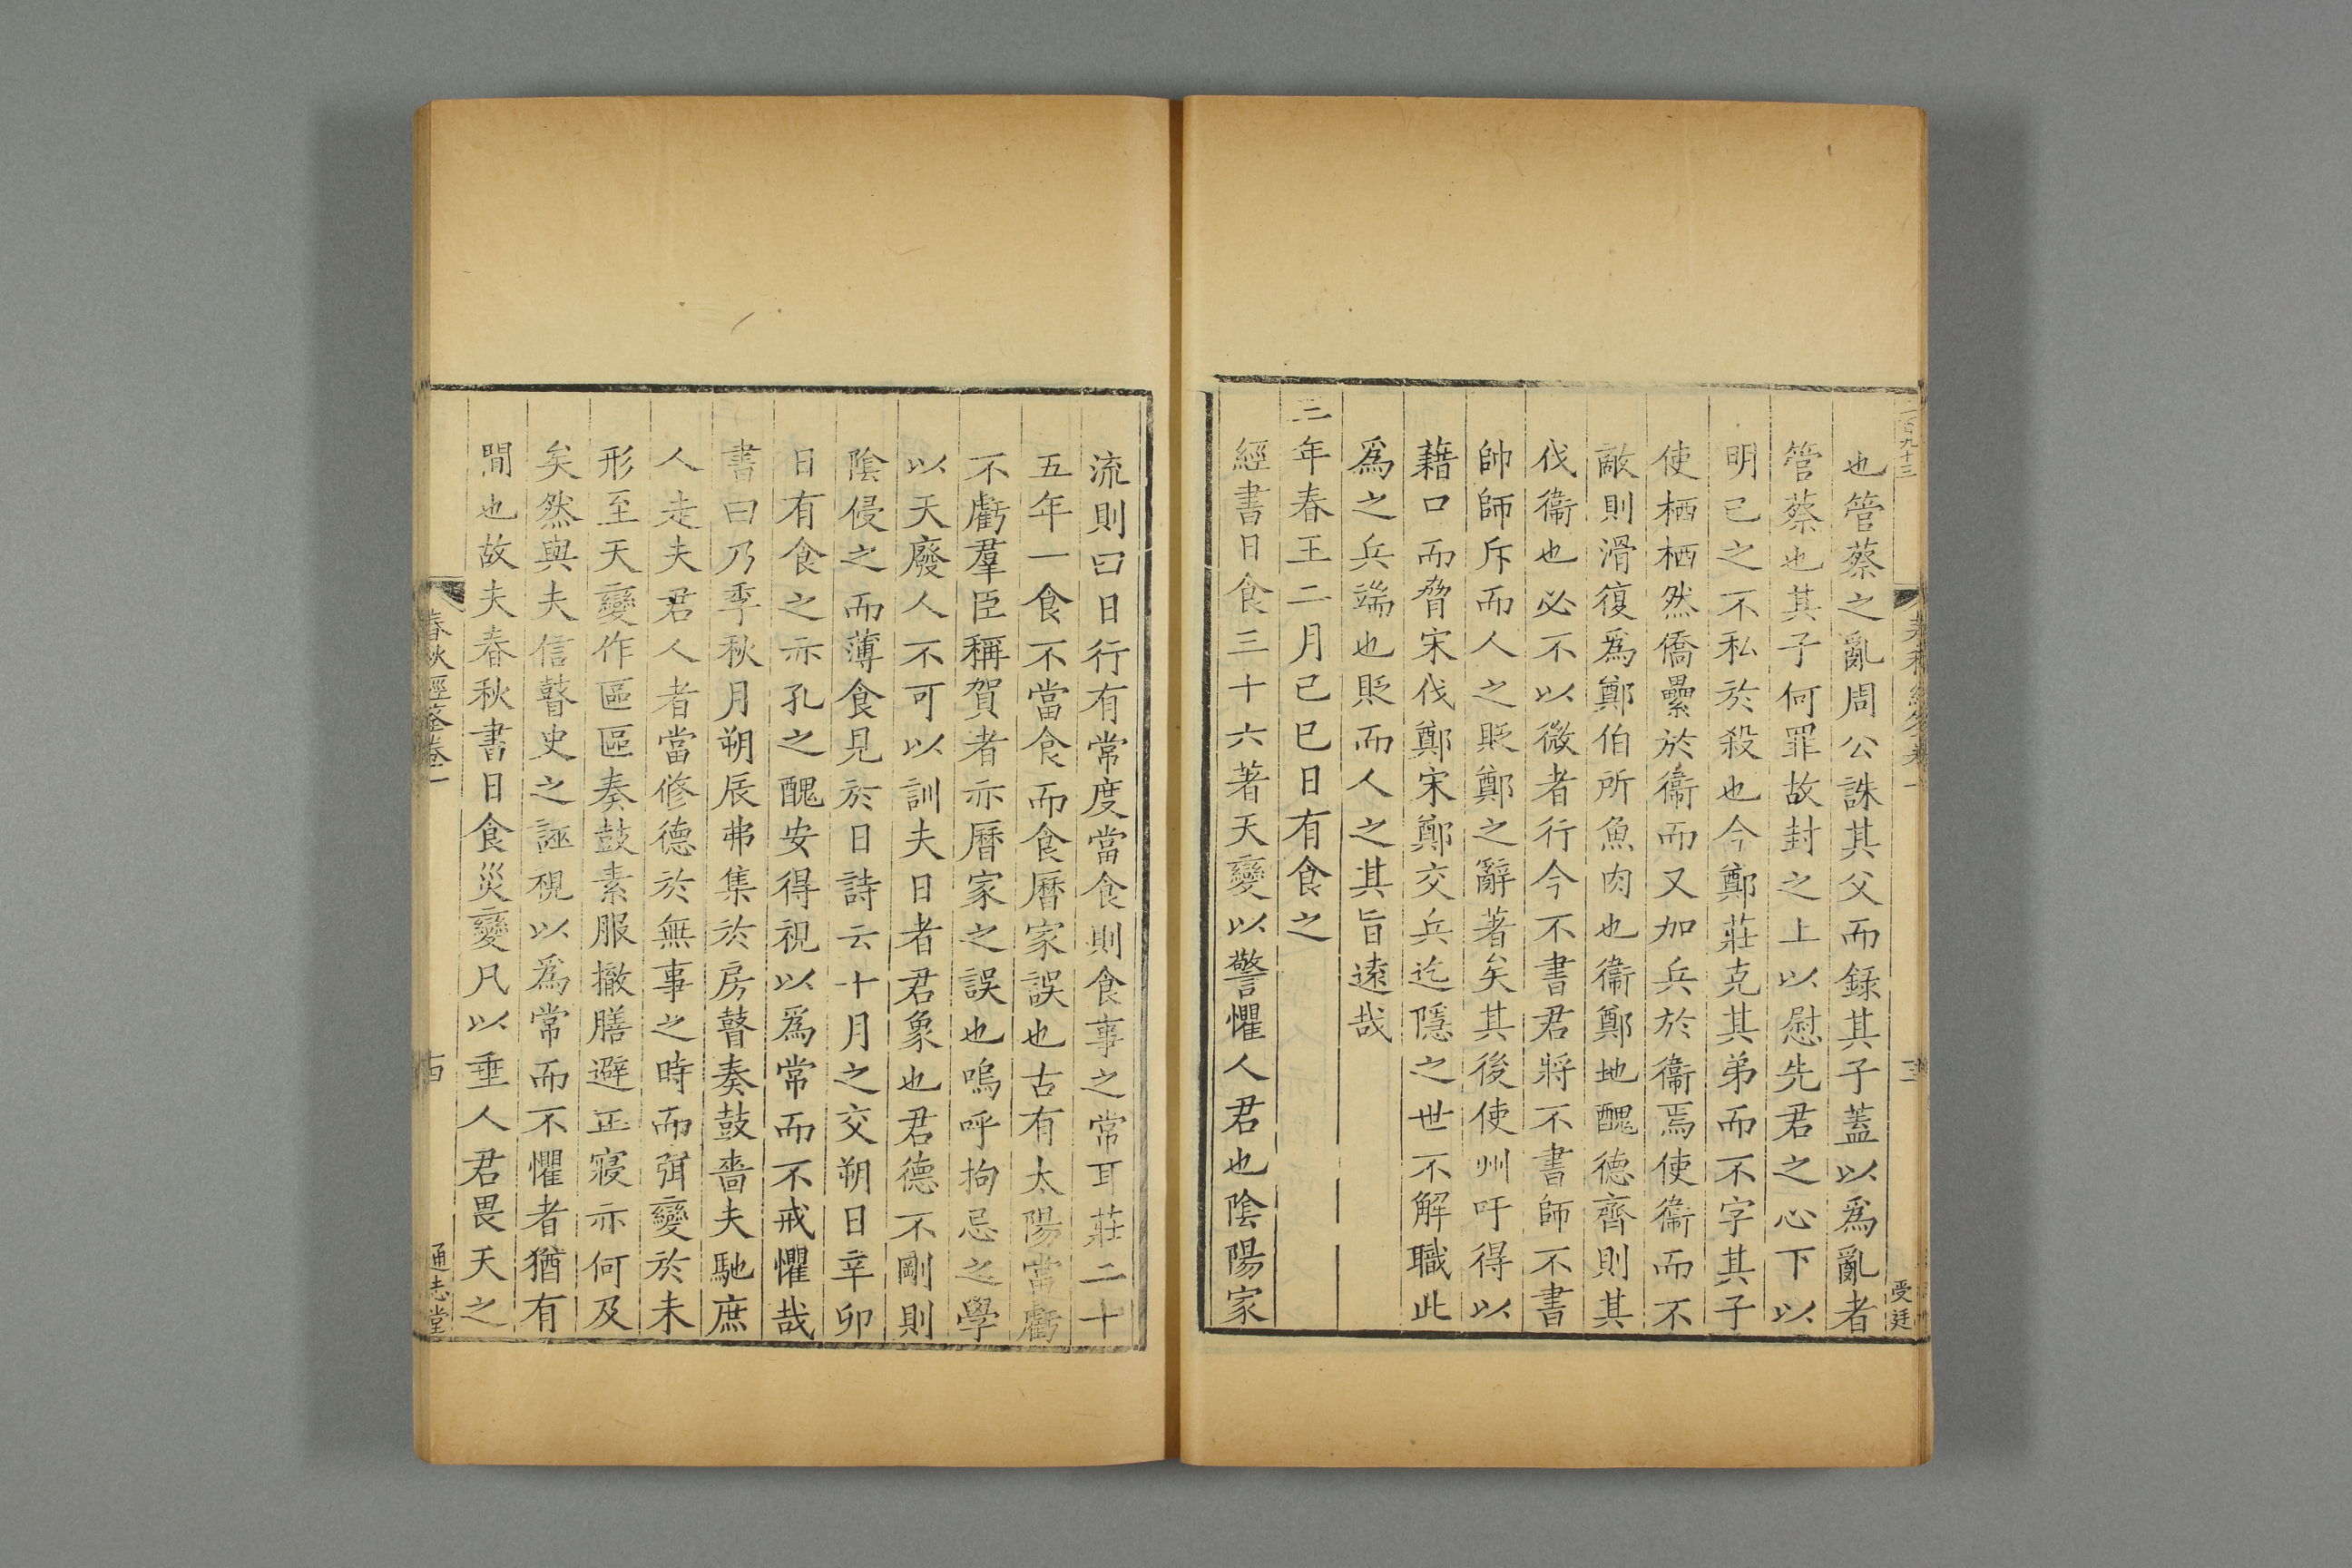 二百九十三
也管蔡之亂周公誅其父而錄其子蓋以爲亂者
管蔡也其子何罪故封之上以慰先君之心下以
明已之不私於殺也今鄭莊克其弟而不字其子
使栖栖然僑纍於衞而又加兵於衞焉使衞而不
敵則滑復爲鄭伯所魚肉也衞鄭地醜德齊則其
伐衞也必不以微者行今不書君將不書師不書
帥師斥而人之貶鄭之辭著矣其後使州吁得以
藉口而脅宋伐鄭宋鄭交兵迄隱之世不解職此
爲之兵端也貶而人之其旨遠哉
三年春王二月己巳日有食之
經書日食三十六著天變以警懼人君也陰陽家
受廷
流則曰日行有常度當食則食事之常耳莊二十
五年一食不當食而食曆家誤也古有太陽當虧
不虧羣臣稱賀者亦曆家之誤也嗚呼拘忌之學
以天廢人不可以訓夫日者君象也君德不剛則
陰侵之而薄食見於日詩云十月之交朔日辛卯
日有食之亦孔之醜安得視以爲常而不戒懼哉
書曰乃季秋月朔辰弗集於房瞽奏鼓嗇夫馳庶
人走夫君人者當修德於無事之時而弭變於未
形至天變作區區奏鼓素服撤膳避正寢亦何及
矣然與夫信瞽史之誣視以爲常而不懼者猶有
間也故夫春秋書日食災變凡以垂人君畏天之
春秋經筌卷一
十四
通志堂